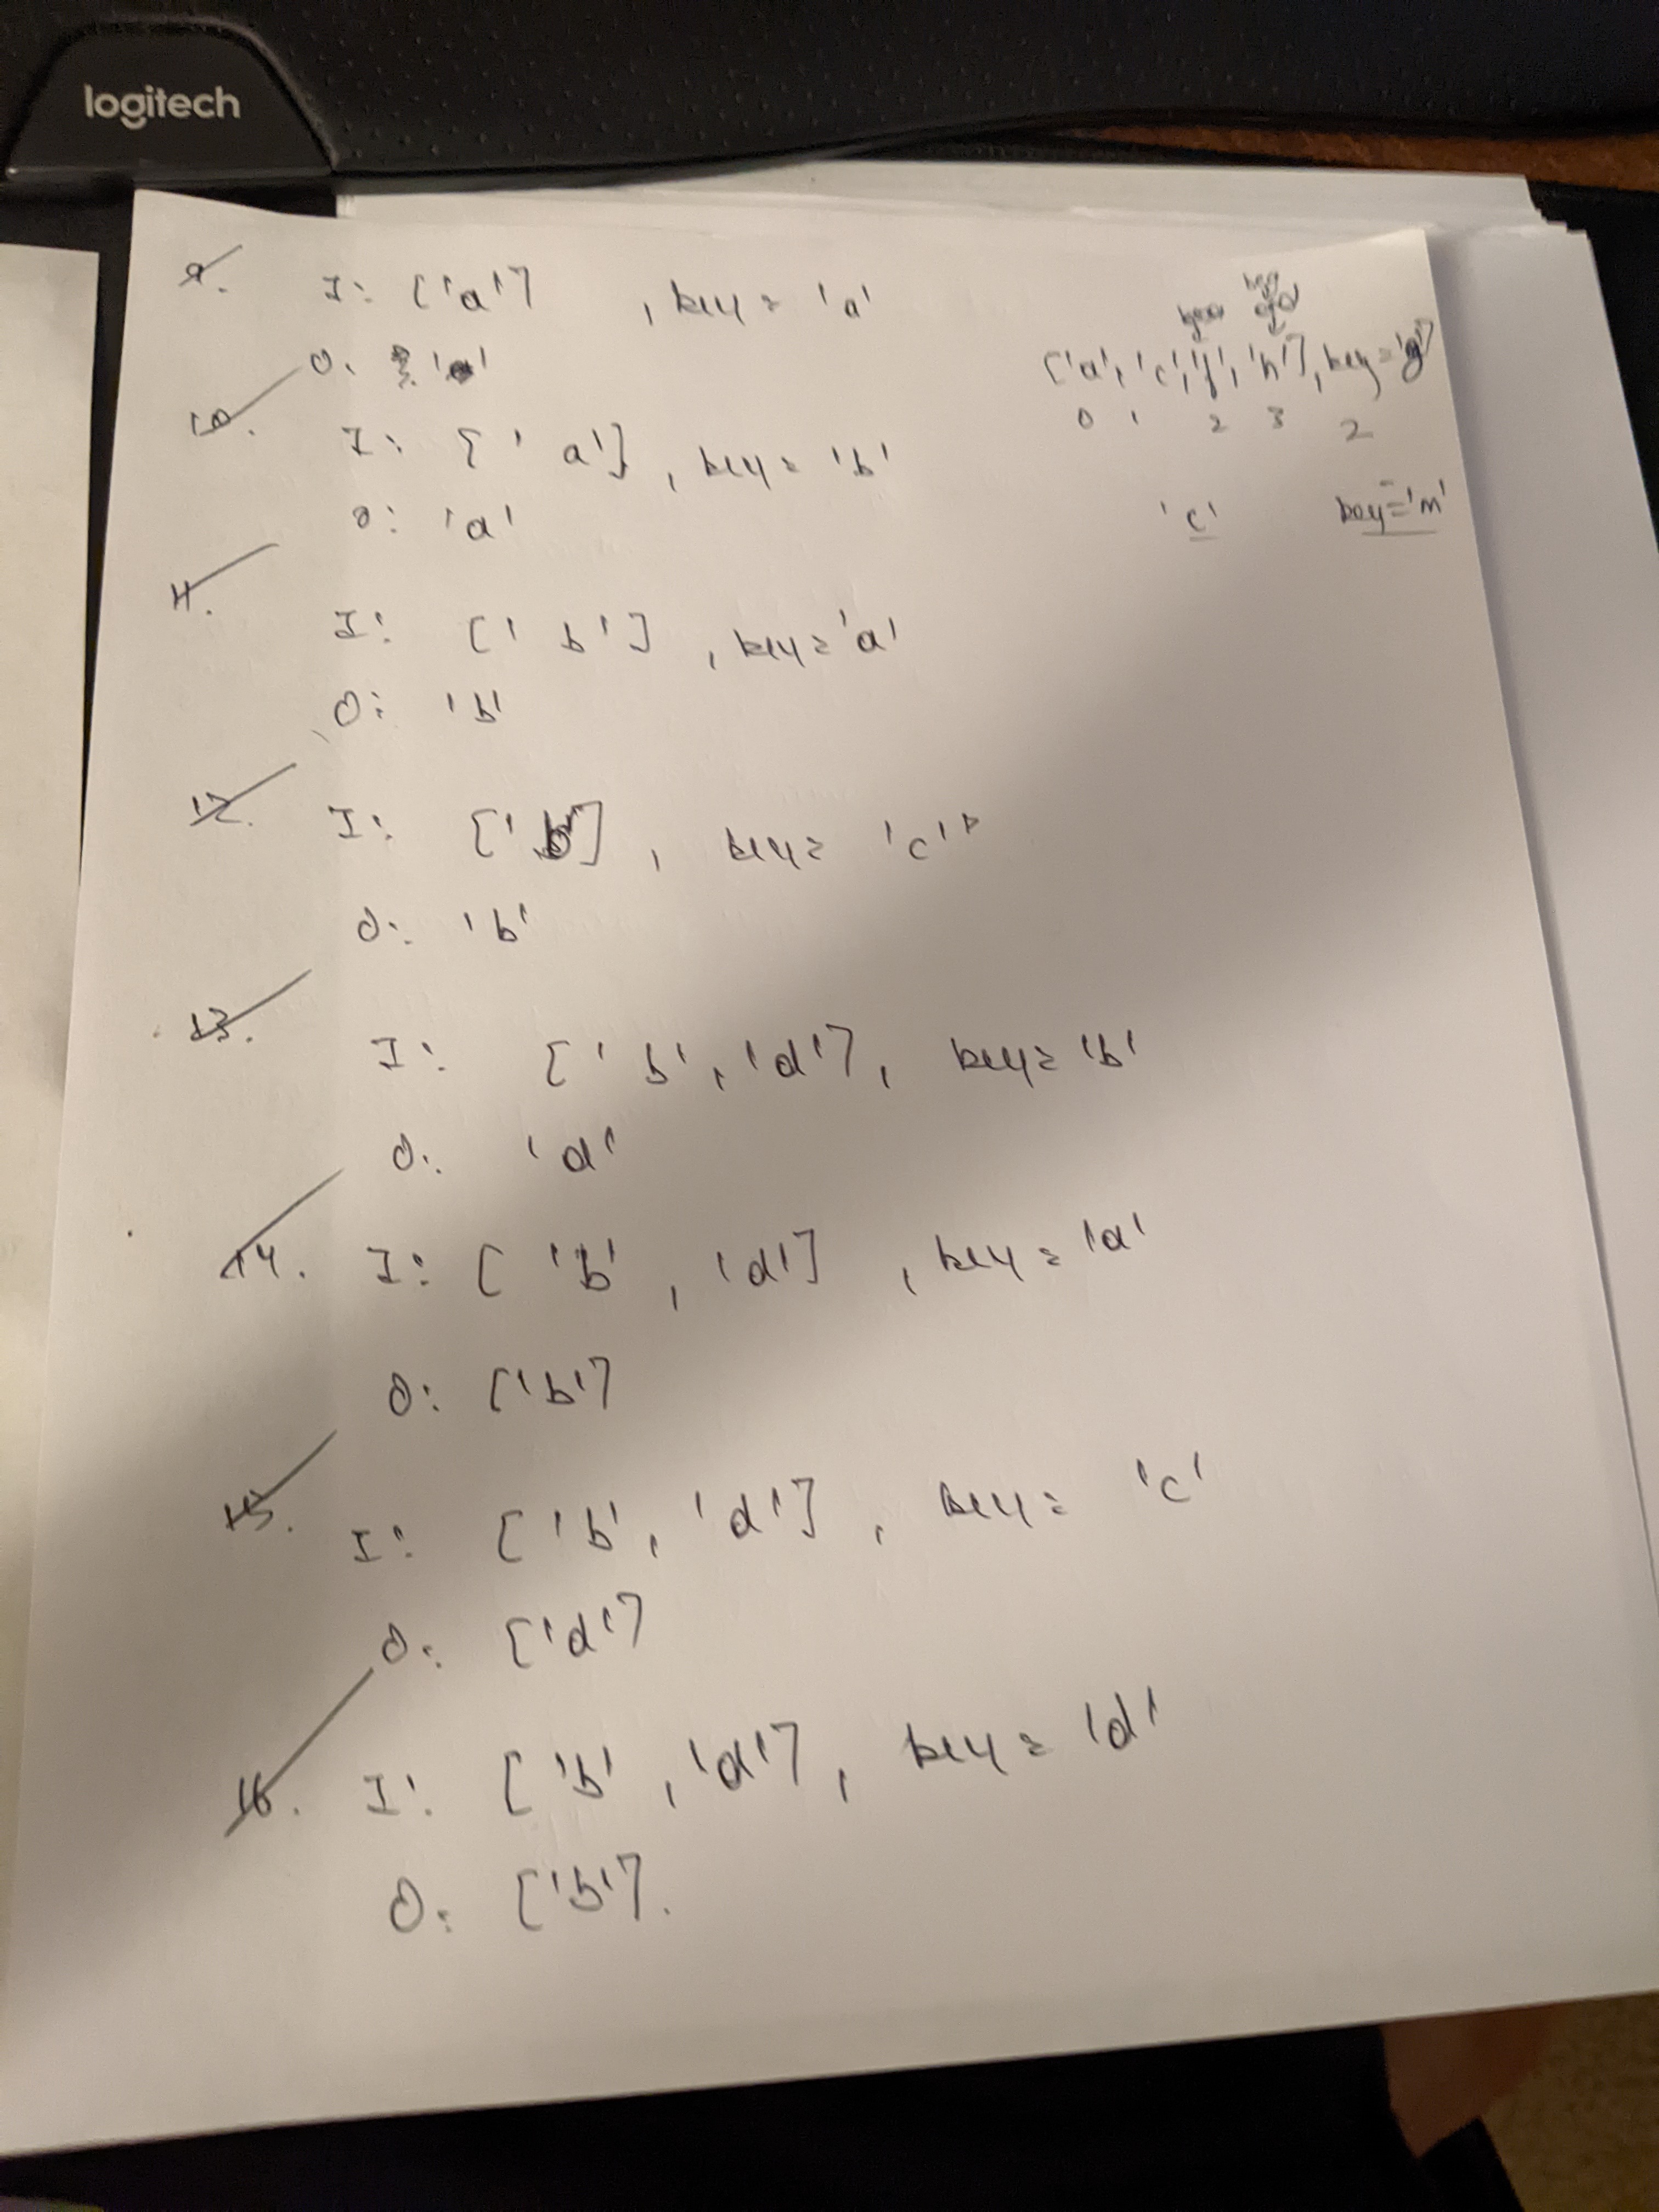 logitech
9. I: ['a'] , key = 'a'
O: 'a'
10. I: ['a'] , key = 'b'
O: 'a'
11. I: ['b'] , key = 'a'
O: 'b'
12. I: ['b'] , key = 'c'
O: 'b'
13. I: ['b', 'd'], key = 'b'
O: 'd'
14. I: ['b', 'd'] , key = 'a'
O: ['b']
15. I: ['b', 'd'] , key = 'c'
O: ['d']
16. I: ['b', 'd'], key = 'd'
O: ['b'].
['a', 'c', 'f', 'h'], key = 'g'
0 1 2 3 2
'c' key = 'm'